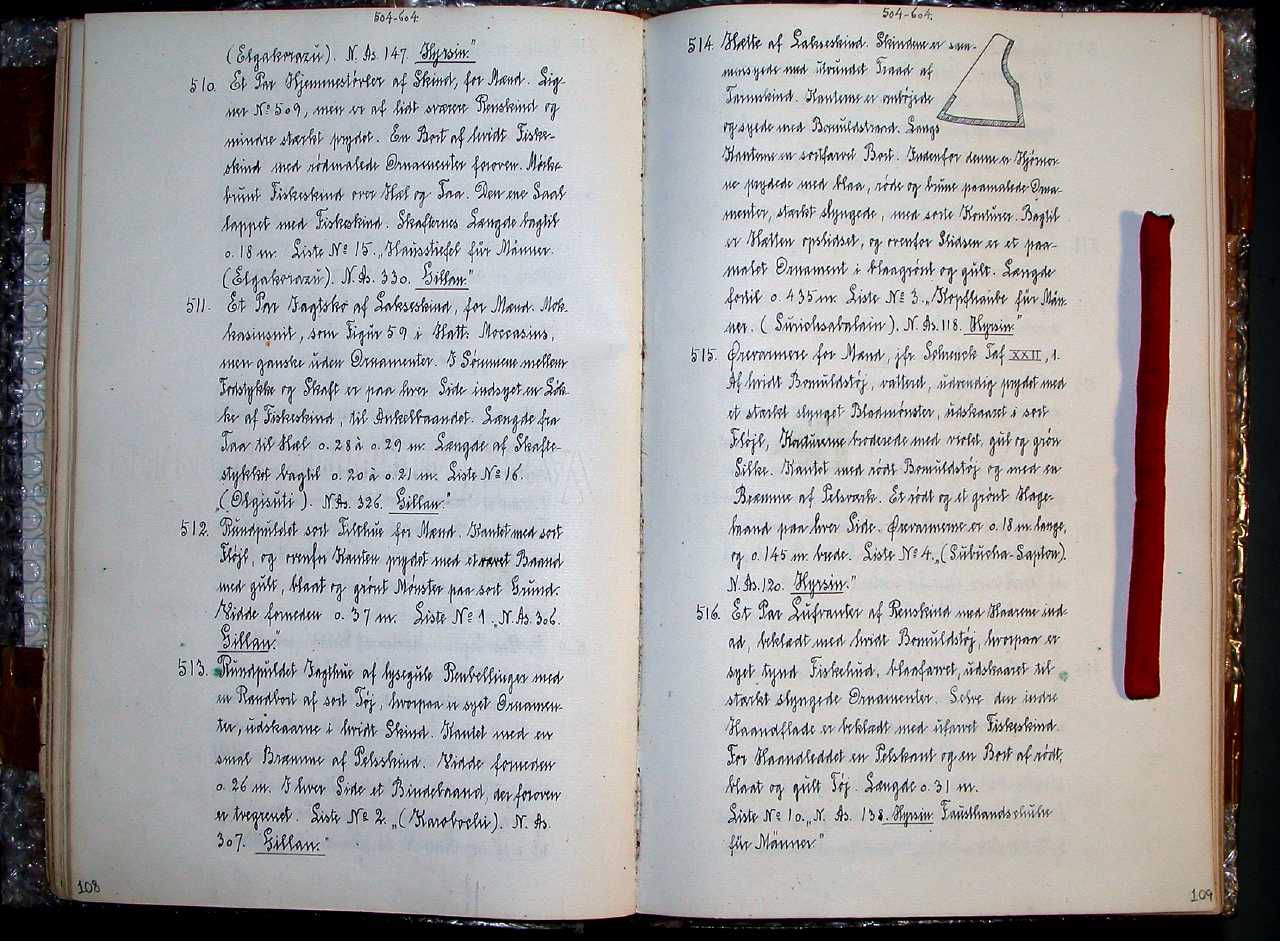 504-604.
(Elgakorazu). N. As. 147. Hyrsin."
510. Et Par Hjemmestövler af Skind, for Mænd. Lig-
ner No 509, men er af lidt sværere Renskind og
mindre stærkt prydet. En Bort af hvidt Fiske-
skind med rödmalede Ornamenter foroven. Mörke-
brunt Fiskeskind over Hæl og Taa. Den ene Saal
lappet med Fiskeskind. Skafternes Længde bagtil
o. 18 m. Liste No 15. „Hausstiefel für Männer.
(Elgakorazu). N. As. 330. Gillan."
511. Et Par Jagtsko af Lakseskind, for Mænd. Mok-
kasinsnit, som Figur 59 i Hatt: Moccasins,
men ganske uden Ornamenter. I Sömmene mellem
Fodstykke og Skaft er paa hver Side indsyet en Lök-
ke af Fiskeskind, til Ankelbaandet. Længde fra
Taa til Hæl o. 28 à o. 29 m. Længde af Skafte-
stykket bagtil o. 20 à o. 21 m. Liste No 16.
„(Olgisuti). N. As. 326. Gillan."
512. Rundpuldet sort Filthue for Mænd. Kantet med sort
Flöjl, og ovenfor Kanten prydet med et vævet Baand
med gult, blaat og grönt Mönster paa sort Grund.
Vidde forneden o. 37 m. Liste No 1. „N. As. 306.
Gillan."
513. Rundpuldet Jagthue af lysegule Renbellinger med
en Randbort af sort Töj, hvorpaa er syet Ornamen-
ter, udskaarne i hvidt Skind. Kantet med en
smal Bræmme af Pelsskind. Vidde forneden
o. 26 m. I hver Side et Bindebaand, der foroven
er tvegrenet. Liste No 2. „(Karobochi). N. As.
307. Gillan."
108
504-604.
514. Hætte af Lakseskind. Skindene er sam-
mensyede med utvundet Traad af
Tarmskind. Kanterne er omböjede
og syede med Bomuldstraad. Langs
Kanterne en sortfarvet Bort. Indenfor denne er Hjörner-
ne prydede med blaa, röde og brune paamalede Orna-
menter, stærkt slyngede, med sorte Konturer. Bagtil
er Hætten opslidset, og ovenfor Slidsen er et paa-
malet Ornament i blaagrönt og gult. Længde
fortil o. 435 m. Liste No 3. „Kopfhaube für Män-
ner. (Surichsabalain). N. As. 118. Hyrsin."
515. Örevarmere for Mænd, jfr. Schrenck Taf XXII, 1.
Af hvidt Bomuldstöj, vatteret, udvendig prydet med
et stærkt slynget Bladmönster, udskaaret i sort
Flöjl, Konturerne broderede med violet, gul og grön
Silke. Kantet med rödt Bomuldstöj og med en
Bræmme af Pelsværk. Et rödt og et grönt Hage-
baand paa hver Side. Örevarmerne er o. 18 m. lange,
og o. 145 m. brede. Liste No 4. „(Sububcha-Sapton).
N. As. 120. Hyrsin."
516. Et Par Lufvanter af Renskind med Haarene ind-
ad, beklædt med hvidt Bomuldstöj, hvorpaa er
syet tynd Fiskehud, blaafarvet, udskaaret til
stærkt slyngede Ornamenter. Selve den indre
Haandflade er beklædt med ufarvet Fiskeskind.
For Haandleddet en Pelskant og en Bort af rödt,
blaat og gult Töj. Længde o. 31 m.
Liste No 10. „N. As. 138. Hyrsin. Fausthandschuhe
für Männer"
109